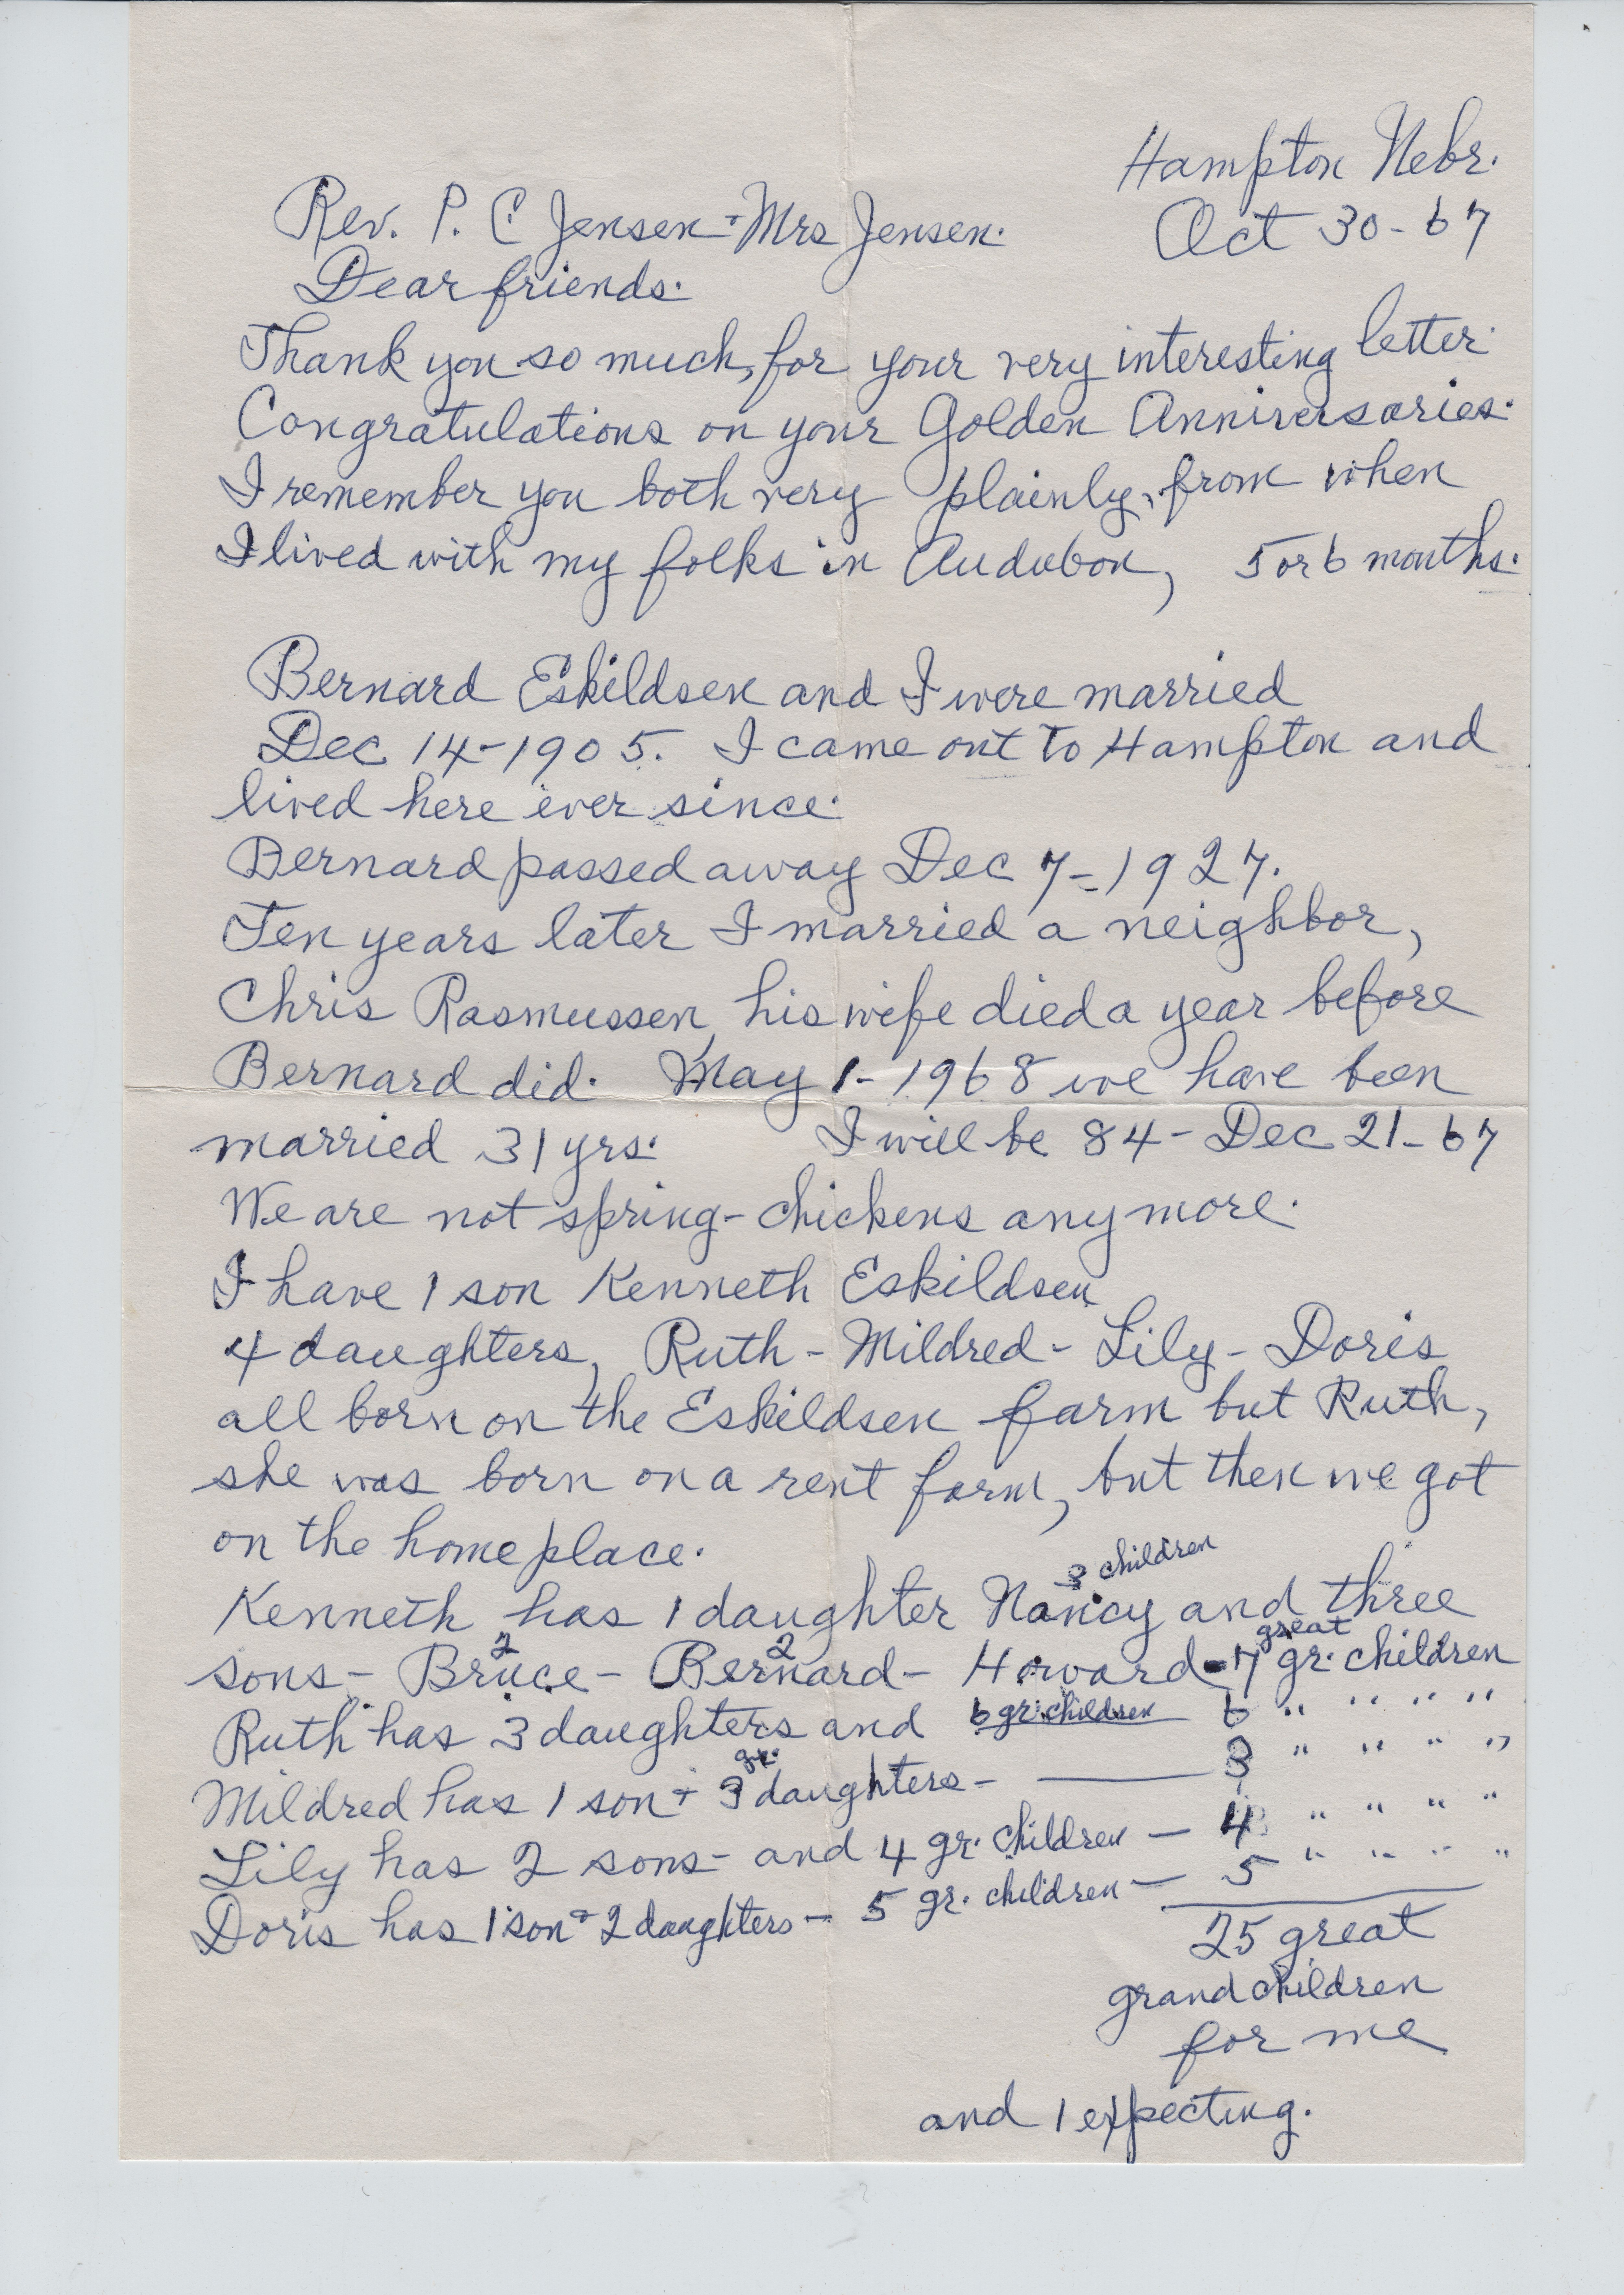 Hampton Nebr.
Rev. P. C Jensen + Mrs Jensen. Oct 30-67
Dear friends.
Thank you so much, for your very interesting letter.
Congratulations on your Golden Anniversaries.
I remember you both very plainly, from when
I lived with my folks in Audubon, 5 or 6 months.
Bernard Eskildsen and I were married
Dec. 14-1905. I came out to Hampton and
lived here ever since.
Bernard passed away Dec 7-1927.
Ten years later I married a neighbor,
Chris Rasmussen, his wife died a year before
Bernard did. May 1-1968 we have been
married 31 yrs. I will be 84- Dec 21-67
We are not spring-chickens anymore.
I have 1 son Kenneth Eskildsen
4 daughters, Ruth- Mildred- Lily- Doris
all born on the Eskildsen farm but Ruth,
she was born on a rent farm, but then we got
on the home place.
3 children
Kenneth has 1 daughter Nancy and three
2 2 great
sons- Bruce- Bernard- Howard- 7 gr. children
Ruth has 3 daughters and 6 gr. children 6 " " " "
gr.
Mildred has 1 son + 3 daughters- 3 " " " "
Lily has 2 sons- and 4 gr. children - 4 " " " "
Doris has 1 son + 2 daughters- 5 gr. children - 5 " " " "
25 great
grandchildren
for me
and 1 expecting.